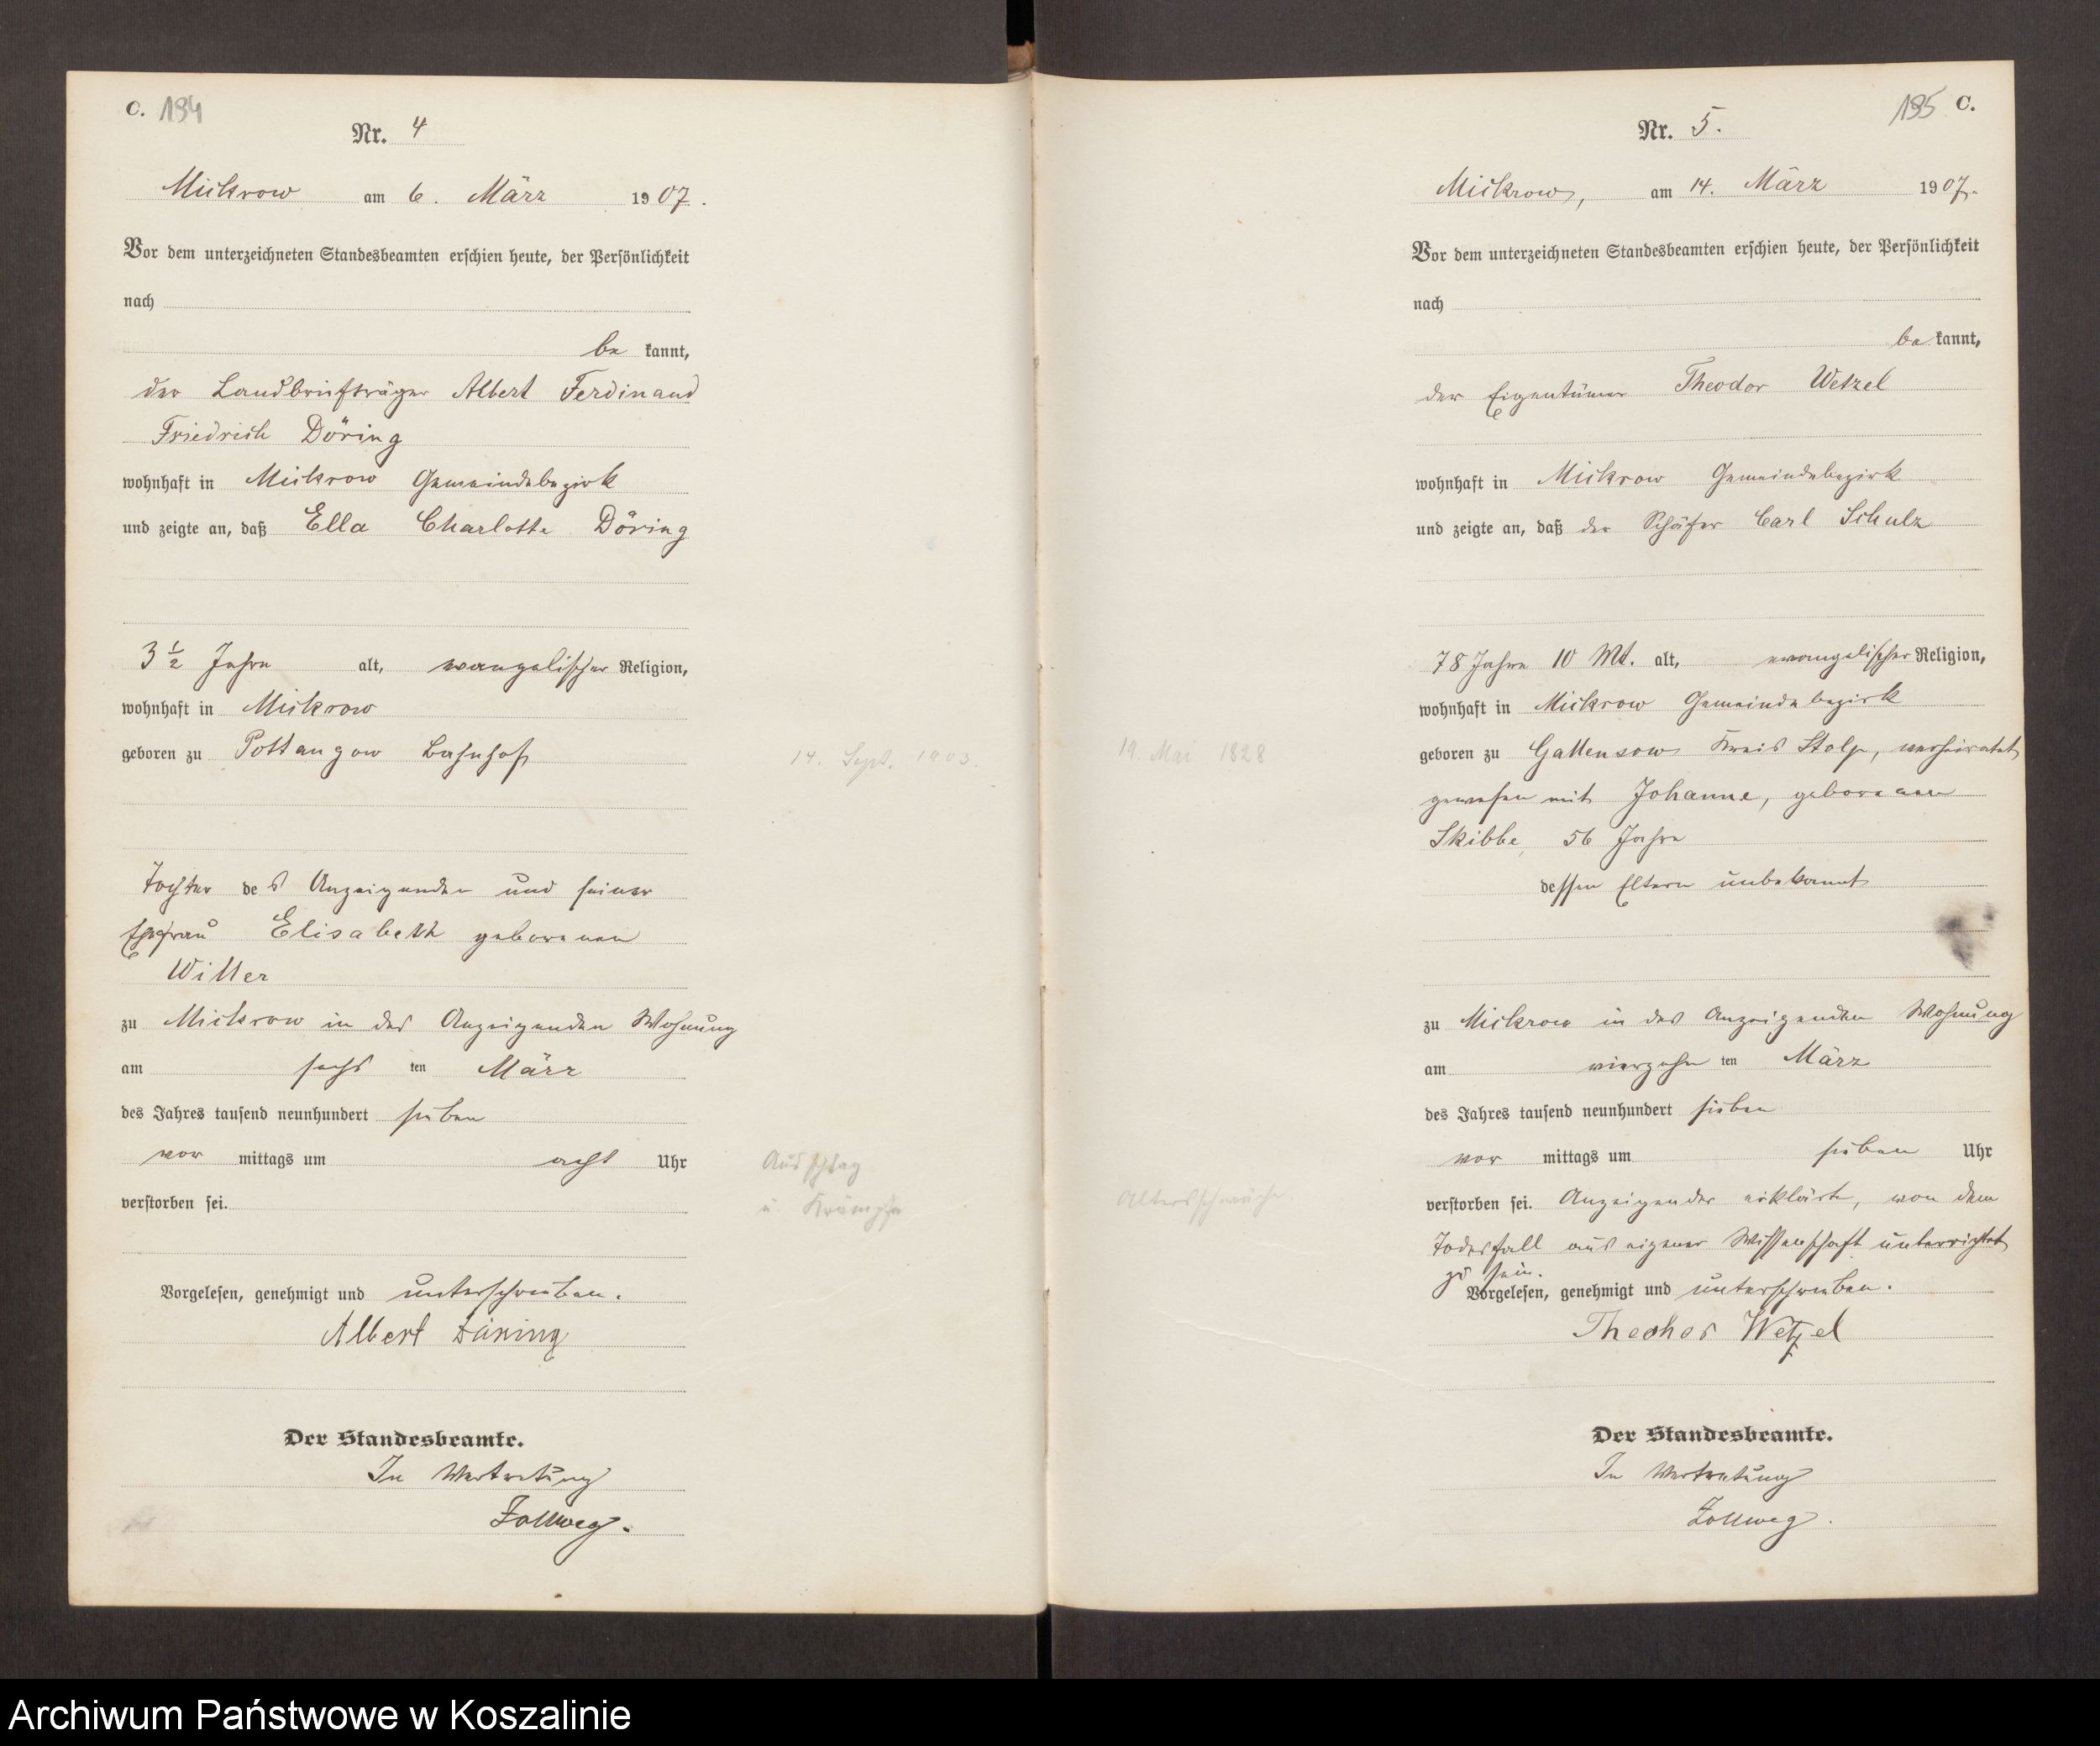 C. 194
Nr. 4
Mickrow am 6. März 1907.
Vor dem unterzeichneten Standesbeamten erschien heute, der Persönlichkeit
nach
be kannt,
der Landbriefträger Albert Ferdinand
Friedrich Döring
wohnhaft in Mickrow Gemeindebezirk
und zeigte an, daß Ella Charlotte Döring
3 1/2 Jahre alt, evangelischer Religion,
wohnhaft in Mickrow
geboren zu Pottangow Bahnhof
14. Sept. 1903.
Tochter des Anzeigenden und seiner
Ehefrau Elisabeth geborenen
Witter
zu Mickrow in des Anzeigenden Wohnung
am sechs ten März
des Jahres tausend neunhundert sieben
vor mittags um acht Uhr
Ausschlag
verstorben sei.
u. Krämpfe
Vorgelesen, genehmigt und unterschrieben.
Albert Döring
Der Standesbeamte.
In Vertretung
Zollweg.
195 C.
Nr. 5.
Mickrow, am 14. März 1907.
Vor dem unterzeichneten Standesbeamten erschien heute, der Persönlichkeit
nach
be kannt,
der Eigentümer Theodor Wetzel
wohnhaft in Mickrow Gemeindebezirk
und zeigte an, daß der Schäfer Carl Schulz
78 Jahre 10 Mt. alt, evangelischer Religion,
wohnhaft in Mickrow Gemeindebezirk
19. Mai 1828
geboren zu Gallensow Kreis Stolp, verheiratet
gewesen mit Johanne, geborenen
Skibbe, 56 Jahre
dessen Eltern unbekannt
zu Mickrow in des Anzeigenden Wohnung
am vierzehn ten März
des Jahres tausend neunhundert sieben
vor mittags um sieben Uhr
Altersschwäche
verstorben sei. Anzeigender erklärte, von dem
Todesfall aus eigener Wissenschaft unterrichtet
zu sein.
Vorgelesen, genehmigt und unterschrieben.
Theodor Wetzel
Der Standesbeamte.
In Vertretung
Zollweg.
Archiwum Państwowe w Koszalinie